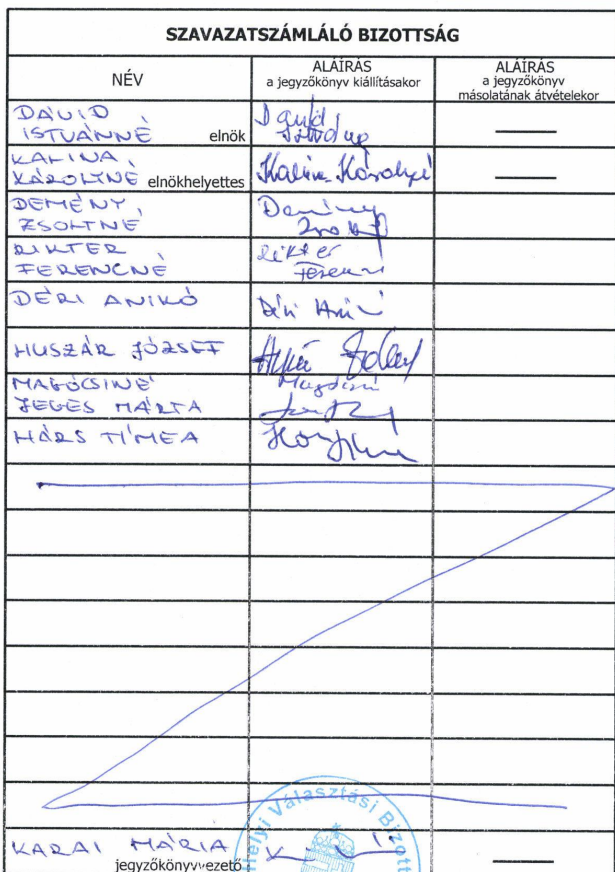 SZAVAZATSZÁMLÁLÓ BIZOTTSÁG
NÉV
ALÁÍRÁS
a jegyzőkönyv kiállításakor
ALÁÍRÁS
a jegyzőkönyv
másolatának átvételekor
DÁVID
ISTVÁNNÉ elnök
Dávid
KALINA
KÁROLYNÉ elnökhelyettes
Kalina Károlyné
DEMÉNY
ZSOLTNÉ
Demény
RIKTER
FERENCNÉ
Rikter
Ferencné
DÉRI ANIKÓ
Déri Anikó
HUSZÁR JÓZSEF
MAGÓCSINÉ
JEGES MÁRTA
Magócsiné
HÁRS TÍMEA
Helyi Választási Bizott
KARAI MÁRIA
jegyzőkönyvvezető